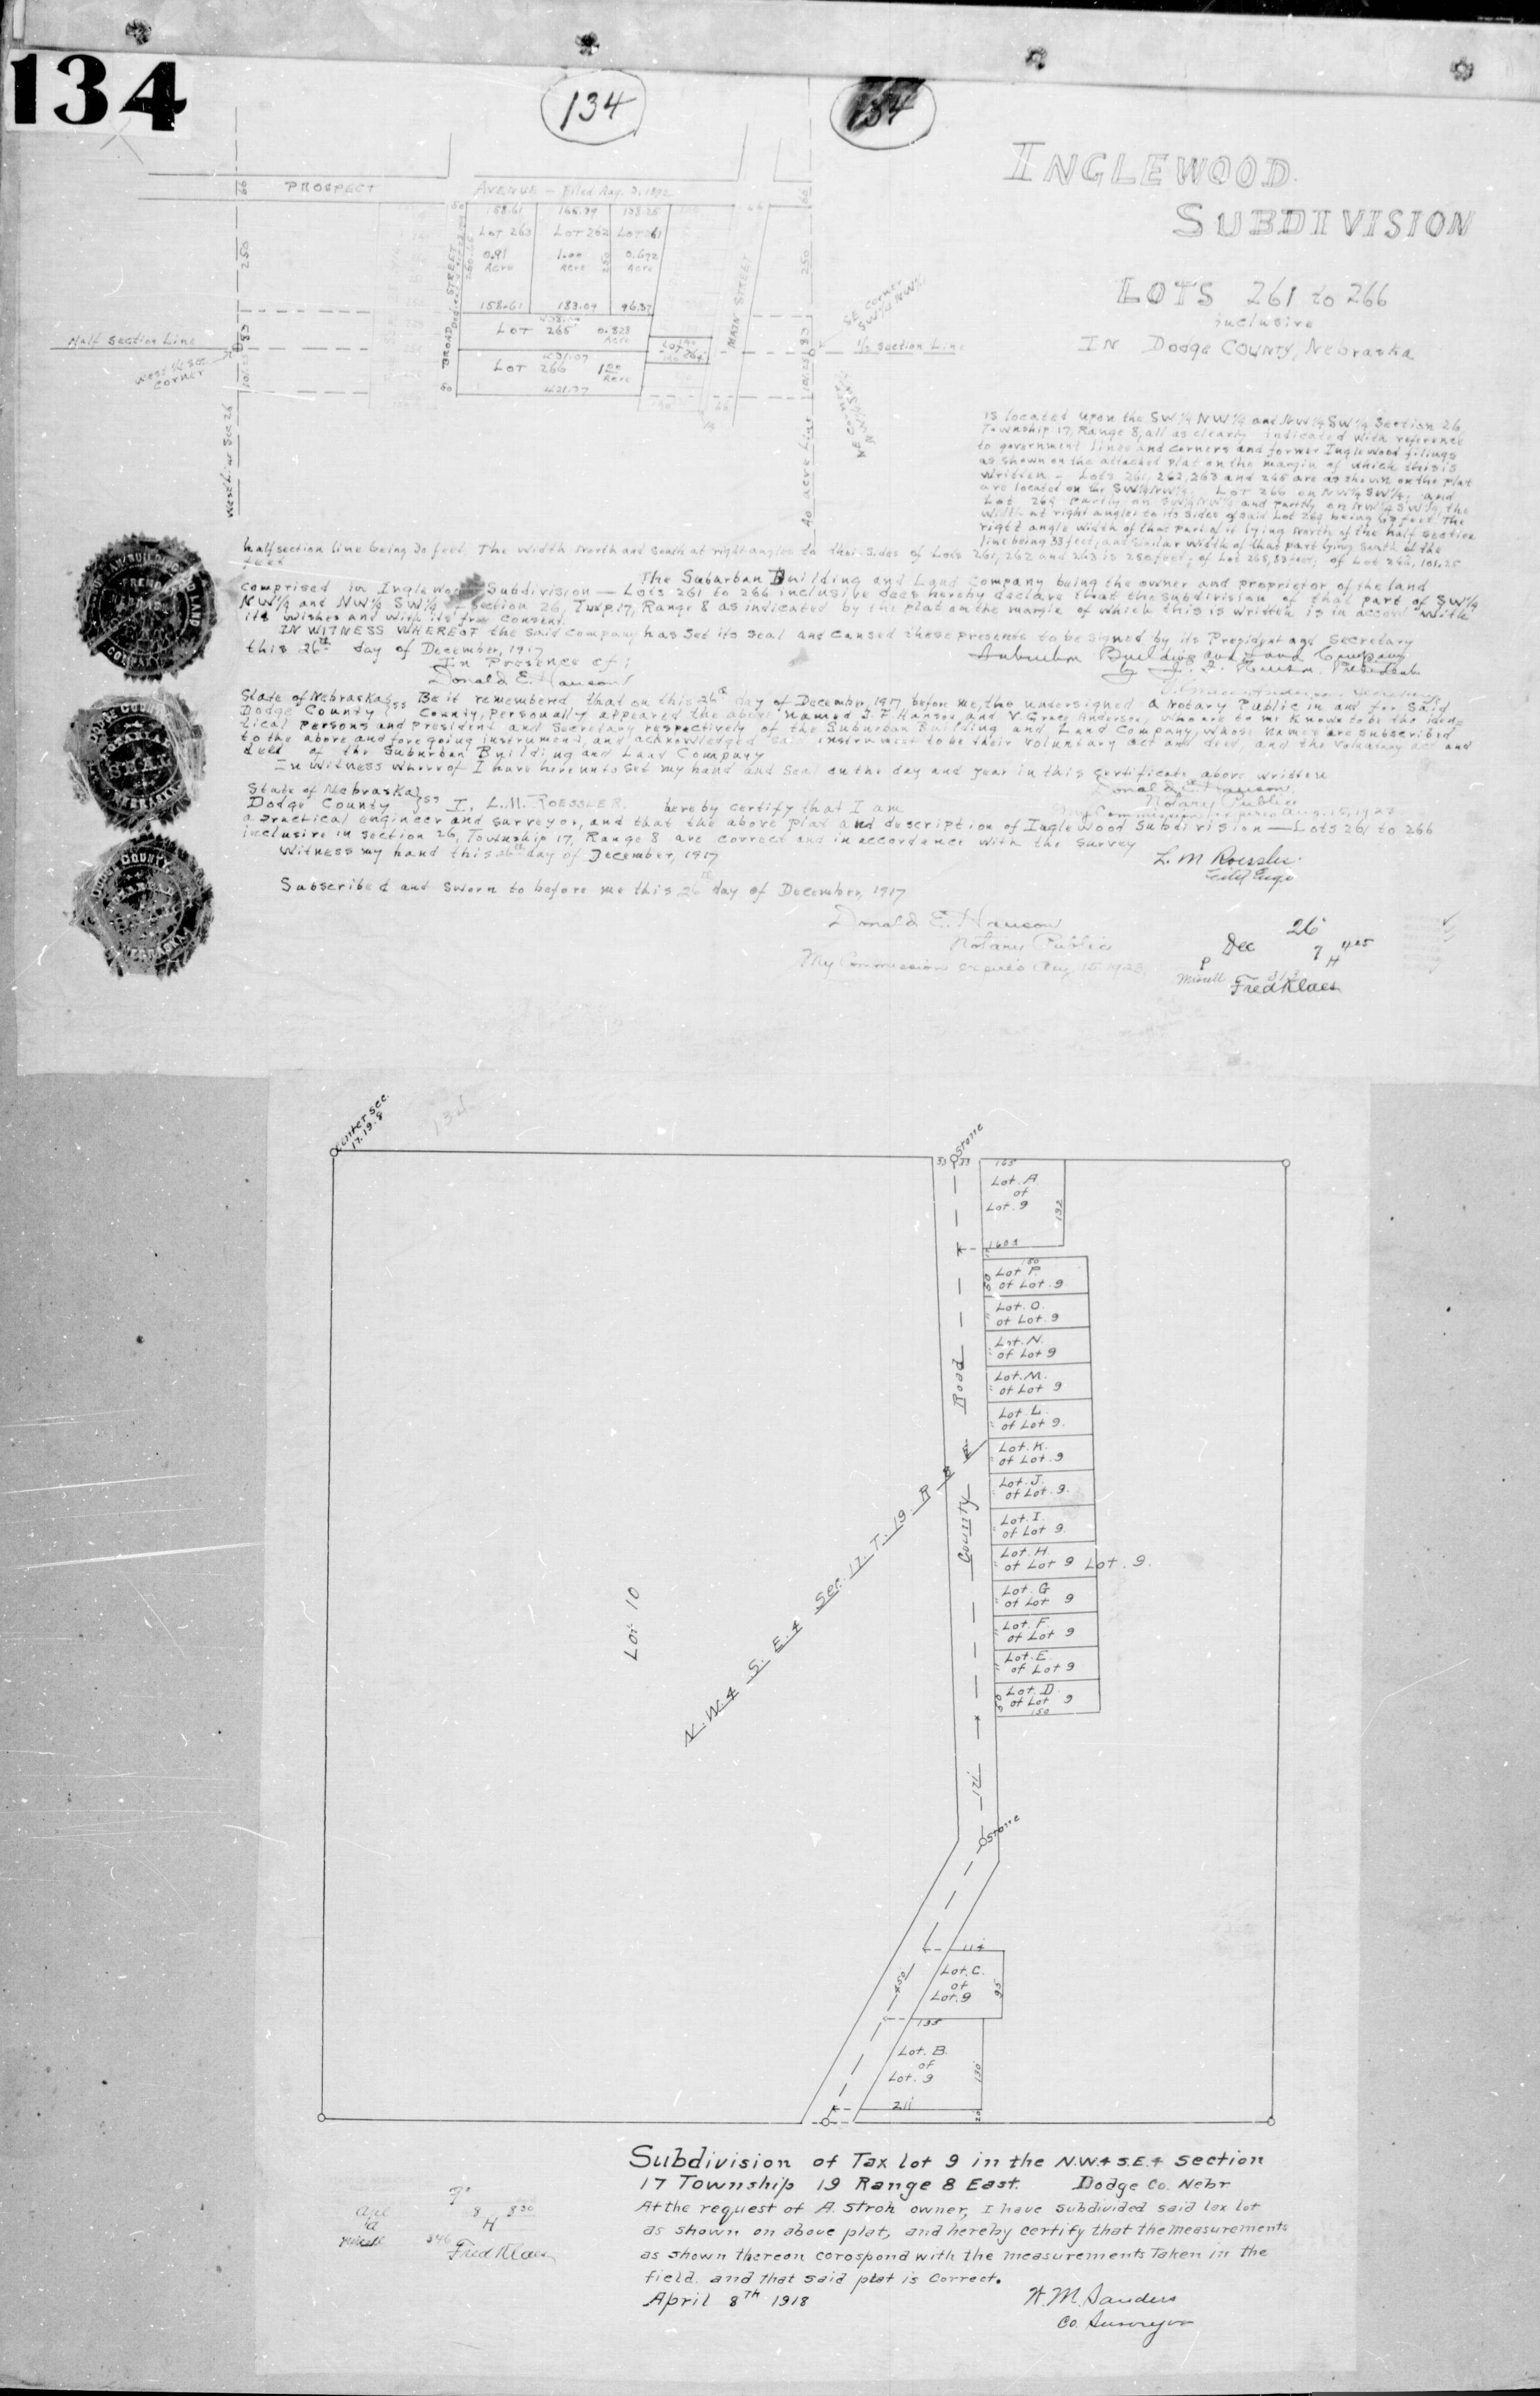 134
134
134
INGLEWOOD
SUBDIVISION
LOTS 261 to 266
inclusive
IN Dodge COUNTY, Nebraska
PROSPECT AVENUE - Filed Aug. 3, 1892
60
50
158.61 166.39 138.25
66
60
LOT 263 LOT 262 LOT 261
0.91 Acre 1.00 Acre 0.692 Acre
250
250
BROAD STREET
MAIN STREET
158.61 183.09 96.37
LOT 265 0.828 Acre
LOT 266
421.37
50
83
83
101.25
101.25
Half Section Line
1/2 Section Line
West 1/4 Sec. corner
West Line Sec 26
40 acre Line
SE Corner SW1/4 NW1/4
is located upon the SW 1/4 NW 1/4 and NW 1/4 SW 1/4 Section 26,
Township 17, Range 8, all as clearly indicated with reference
to government lines and corners and former Inglewood filings
as shown on the attached plat on the margin of which this is
written. - Lots 261, 262, 263 and 265 are as shown on the plat
are located on the SW1/4NW1/4; Lot 266 on NW1/4SW1/4; and
Lot 264 partly on SW1/4NW1/4 and partly on NW1/4SW1/4, the
width at right angles to its sides of said Lot 264 being 63 feet. The
right angle width of that part of it lying north of the half section
line being 33 feet, and similar width of that part lying south of the
half section line being 30 feet. The width North and South at right angles to their sides of Lots 261, 262 and 263 is 250 feet; of Lot 265, 83 feet; of Lot 266, 101.25
feet
The Suburban Building and Land Company being the owner and proprietor of the land
comprised in Inglewood Subdivision — Lots 261 to 266 inclusive does hereby declare that the subdivision of that part of SW 1/4
NW 1/4 and NW 1/4 SW 1/4 of Section 26, Twp. 17, Range 8 as indicated by the plat on the margin of which this is written is in accord with
its wishes and with its free consent.
IN WITNESS WHEREOF the said company has set its seal and caused these presents to be signed by its President and Secretary
this 26th day of December, 1917
Suburban Building and Land Company
In Presence of:
Donald E. Hanson
State of Nebraska } ss Be it remembered that on this 26th day of December, 1917, before me, the undersigned a Notary Public in and for said
Dodge County County, personally appeared the above named J. F. Hanson and V. Grace Anderson, who are to me known to be the iden=
tical persons and President and Secretary respectively of the Suburban Building and Land Company, whose names are subscribed
to the above and foregoing instrument, and acknowledged said instrument to be their voluntary act and deed, and the voluntary act and
deed of the Suburban Building and Land Company
In Witness whereof I have hereunto set my hand and seal on the day and year in this certificate above written
Donald E. Hanson
Notary Public
My Commission expires Aug. 15, 1923
State of Nebraska } ss
Dodge County I, L.M. ROESSLER, hereby certify that I am
a practical engineer and surveyor, and that the above plat and description of Inglewood Subdivision — Lots 261 to 266
inclusive in Section 26, Township 17, Range 8 are correct and in accordance with the survey
Witness my hand this 26th day of December, 1917
L. M. Roessler
Subscribed and sworn to before me this 26th day of December, 1917
Donald E. Hanson
Notary Public
My Commission expires Aug. 15, 1923
26
Dec 7 4 25
P H
Fred Klaes
Center Sec.
17.19.8
Stone
33 33
165
Lot. A
of
Lot. 9
192
150
50
Lot P.
of Lot. 9
Lot. O.
of Lot. 9
Lot. N.
of Lot 9
Lot. M.
of Lot 9
Lot. L.
of Lot 9.
Lot. K.
of Lot. 9
Lot. J.
of Lot. 9.
Lot. I.
of Lot 9.
Lot. H.
of Lot 9
Lot. 9.
Lot. G
of Lot 9
Lot. F.
of Lot 9
Lot. E.
of Lot 9
Lot. D.
of Lot 9
50
150
County Road
N.W.4 S.E.4 Sec. 17. T. 19. R 8 E
Lot 10
121
Stone
114
Lot. C.
of
Lot. 9
95
450
135
Lot. B.
of
Lot. 9
130
211
20
Subdivision of Tax lot 9 in the N.W.4 S.E.4 Section
17 Township 19 Range 8 East. Dodge Co. Nebr
At the request of A. Stroh owner, I have subdivided said tax lot
as shown on above plat, and hereby certify that the measurements
as shown thereon corospond with the measurements Taken in the
field. and that said plat is Correct.
April 8TH 1918
W. M. Sanders
Co. Surveyor
9
Apl 8 8 30
a H
346
Fred Klaes